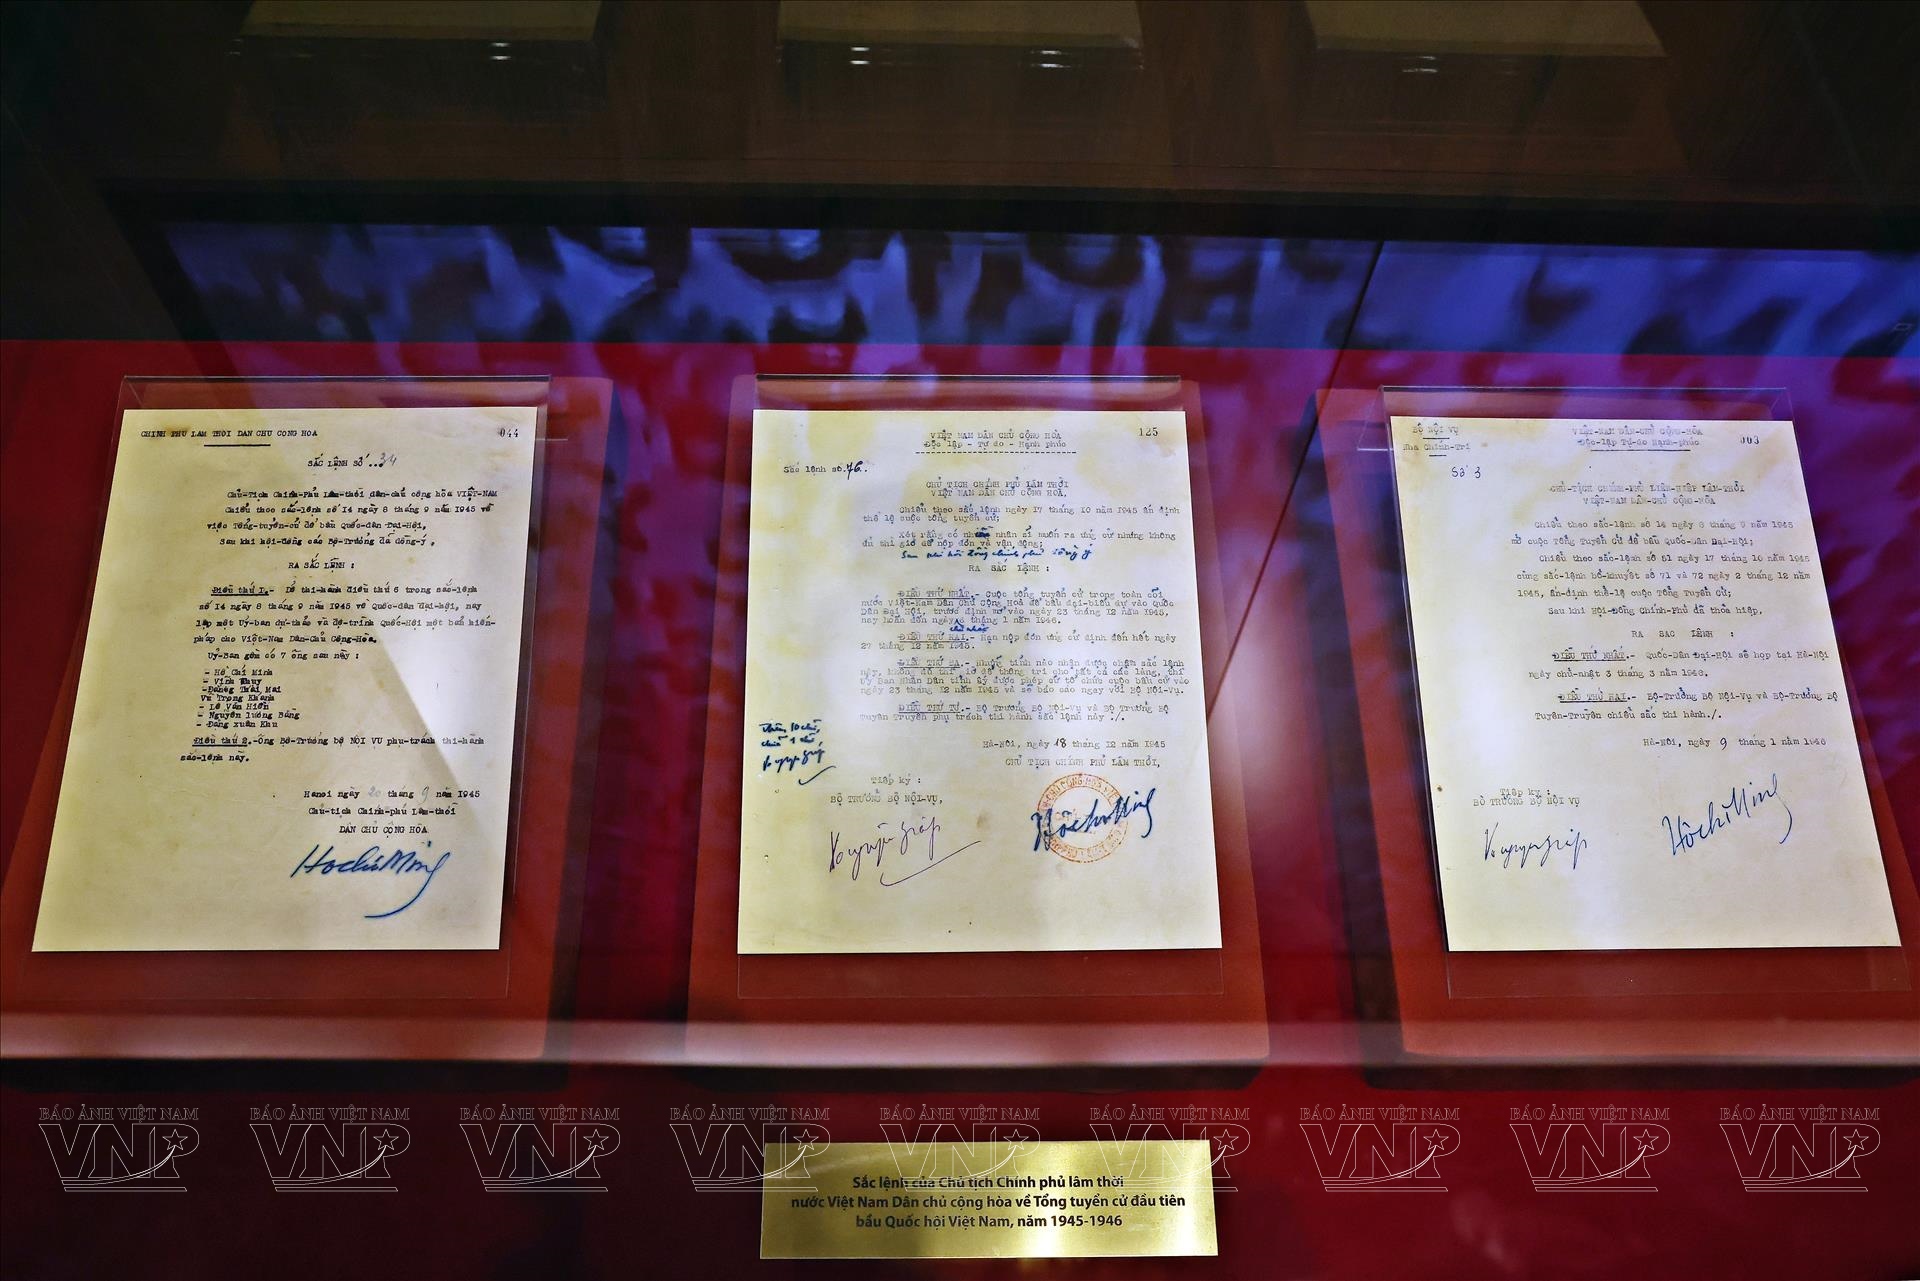 CHÍNH PHỦ LÂM THỜI DÂN CHỦ CỘNG HÒA
044
SẮC LỆNH SỐ...34
Chủ-Tịch Chính-Phủ Lâm-thời dân-chủ cộng hòa VIỆT-NAM
Chiểu theo sắc-lệnh số 14 ngày 8 tháng 9 năm 1945 về
việc Tổng-tuyển-cử để bầu Quốc-dân Đại-Hội,
Sau khi hội-đồng các Bộ-Trưởng đã đồng-ý,
RA SẮC LỆNH :
Điều thứ 1.- Để thi-hành điều thứ 6 trong sắc-lệnh
số 14 ngày 8 tháng 9 năm 1945 về Quốc-dân đại-hội, nay
lập một Uỷ-ban dự-thảo và đệ-trình Quốc-Hội một bản hiến-
pháp cho Việt-Nam Dân-Chủ Cộng-Hòa.
Uỷ-Ban gồm có 7 ông sau này :
- Hồ Chí Minh
- Vĩnh Thuỵ
- Đặng Thai Mai
Vũ Trọng Khánh
- Lê Văn Hiến
- Nguyễn lương Bằng
- Đặng xuân Khu
Điều thứ 2.-Ông Bộ-Trưởng bộ NỘI VỤ phụ-trách thi-hành
sắc-lệnh này.
Hanoi ngày 20 tháng 9 năm 1945
Chủ-tịch Chính-phủ Lâm-thời
DÂN CHỦ CỘNG HÒA
HoChíMinh
VIỆT NAM DÂN CHỦ CỘNG HÒA
125
Độc lập - Tự do - Hạnh phúc
Sắc lệnh số.76..
CHỦ TỊCH CHÍNH PHỦ LÂM THỜI
VIỆT NAM DÂN CHỦ CỘNG HÒA,
Chiểu theo sắc lệnh ngày 17 tháng 10 năm 1945 ấn định
thể lệ cuộc tổng tuyển cử;
Xét rằng có nhân sĩ muốn ra ứng cử nhưng không
đủ thì giờ để nộp đơn và vận động;
RA SẮC LỆNH :
ĐIỀU THỨ NHẤT.- Cuộc tổng tuyển cử trong toàn cõi
nước Việt-Nam Dân Chủ Cộng Hoà để bầu đại-biểu dự vào Quốc
Dân Đại Hội, trước định mở vào ngày 23 tháng 12 năm 1945,
nay hoãn đến ngày 6 tháng 1 năm 1946.
chủ nhật
ĐIỀU THỨ HAI.- Hạn nộp đơn ứng cử định đến hết ngày
27 tháng 12 năm 1945.
ĐIỀU THỨ BA.- Những tỉnh nào nhận được chậm sắc lệnh
này, không đủ thì giờ để thông tri cho tất cả các làng, thì
Uỷ Ban Nhân Dân tỉnh ấy được phép cứ tổ chức cuộc bầu cử vào
ngày 23 tháng 12 năm 1945 và sẽ báo cáo ngay với Bộ Nội-Vụ.
ĐIỀU THỨ TƯ.- Bộ Trưởng Bộ Nội-Vụ và Bộ Trưởng Bộ
Tuyên Truyền phụ trách thi hành sắc lệnh này ./.
Hà-Nội, ngày 18 tháng 12 năm 1945
CHỦ TỊCH CHÍNH PHỦ LÂM THỜI,
Tiếp ký :
BỘ TRƯỞNG BỘ NỘI-VỤ,
Võ nguyên Giáp
HồchíMinh
BỘ NỘI VỤ
Nha Chính-Trị
VIỆT-NAM DÂN-CHỦ CỘNG-HÒA
Độc-lập Tự-do Hạnh-phúc
003
Số 3
CHỦ-TỊCH CHÍNH-PHỦ LIÊN-HIỆP LÂM-THỜI
VIỆT-NAM DÂN-CHỦ CỘNG-HÒA
Chiểu theo sắc-lệnh số 14 ngày 8 tháng 9 năm 1945
mở cuộc Tổng Tuyển Cử để bầu Quốc-Dân Đại-Hội;
Chiểu theo sắc-lệnh số 51 ngày 17 tháng 10 năm 1945
cùng sắc-lệnh bổ-khuyết số 71 và 72 ngày 2 tháng 12 năm
1945, ấn-định thể-lệ cuộc Tổng Tuyển Cử;
Sau khi Hội-Đồng Chính-Phủ đã thỏa hiệp,
RA SẮC LỆNH :
ĐIỀU THỨ NHẤT.- Quốc-Dân Đại-Hội sẽ họp tại Hà-Nội
ngày chủ-nhật 3 tháng 3 năm 1946.
ĐIỀU THỨ HAI.- Bộ-Trưởng Bộ Nội-Vụ và Bộ-Trưởng Bộ
Tuyên-Truyền chiểu sắc thi hành./.
Hà-Nội, ngày 9 tháng 1 năm 1946
Tiếp ký :
BỘ TRƯỞNG BỘ NỘI VỤ
Võ nguyên Giáp
HồchíMinh
BÁO ẢNH VIỆT NAM BÁO ẢNH VIỆT NAM BÁO ẢNH VIỆT NAM BÁO ẢNH VIỆT NAM BÁO ẢNH VIỆT NAM BÁO ẢNH VIỆT NAM BÁO ẢNH VIỆT NAM BÁO ẢNH VIỆT NAM BÁO ẢNH VIỆT NAM
VNP VNP VNP VNP VNP VNP VNP VNP VNP
Sắc lệnh của Chủ tịch Chính phủ lâm thời
nước Việt Nam Dân chủ cộng hòa về Tổng tuyển cử đầu tiên
bầu Quốc hội Việt Nam, năm 1945-1946